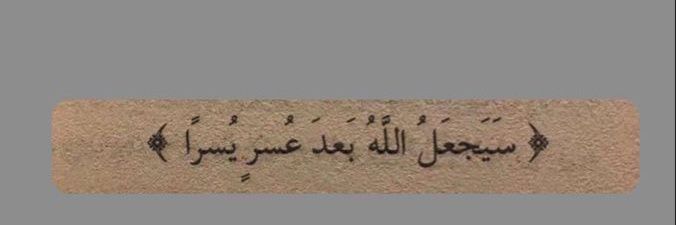 ﴿ سَيَجعَلُ اللَّهُ بَعدَ عُسرٍ يُسرًا ﴾